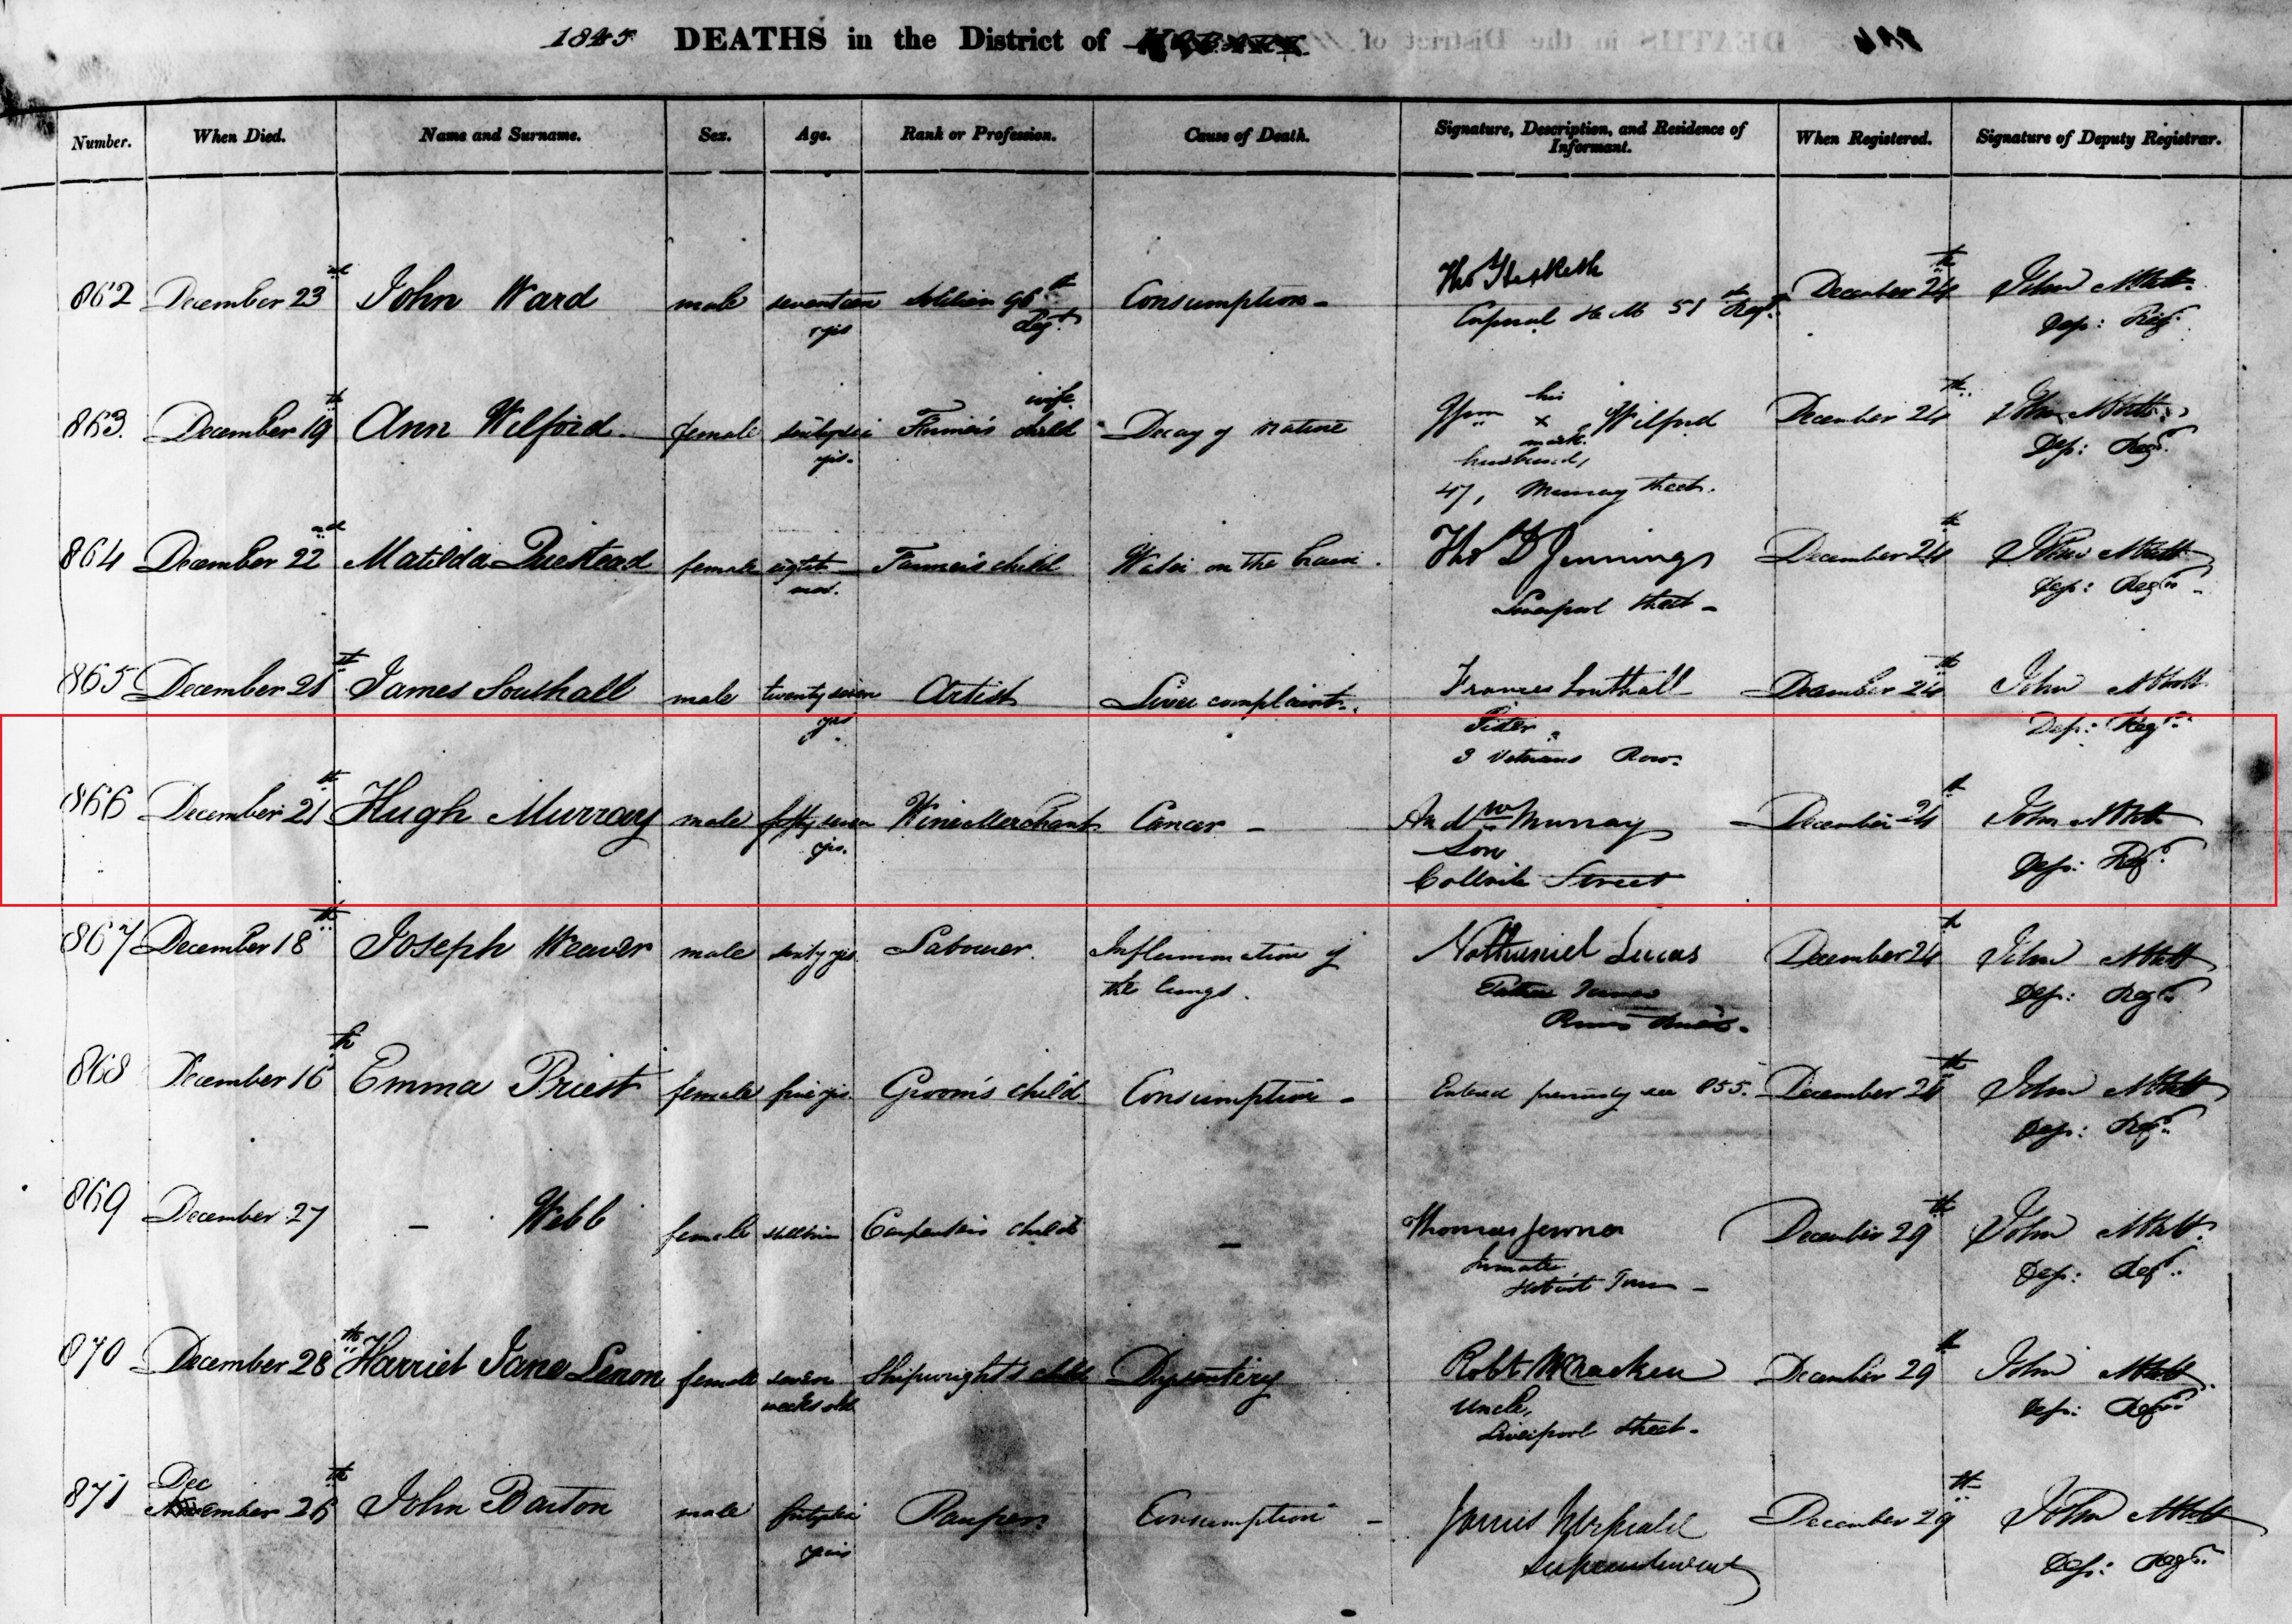 1845 DEATHS in the District of
Number. When Died. Name and Surname. Sex. Age. Rank or Profession. Cause of Death. Signature, Description, and Residence of Informant. When Registered. Signature of Deputy Registrar.
862 December 23rd John Ward male seventeen yrs 96th Regt Consumption - Tho Hesketh Corporal H M 51st Regt December 24th John Abbott Dep: Reg
863. December 19th Ann Wilford female Farmer's wife Decay of nature his x mark Wilford husband, 47, Murray Street. December 24th John Abbott Dep: Regr.
864 December 22nd Matilda female Farmer's child Water on the brain. Tho D Jennings Liverpool Street - December 24th John Abbott Dep: Regr.
865 December 21st James Southall male twenty seven yrs Artist Liver complaint. Frances Southall Sister 3 Veterans Row. December 24th John Abbott Dep: Regr.
866 December 21st Hugh Murray male fifty seven yrs. Wine Merchant Cancer - Andw Murray Son Collvile Street December 24th John Abbott Dep: Regr.
867 December 18th Joseph Weaver male sixty yrs Labourer. Inflammation of the lungs. Nathaniel Lucas December 24th John Abbott Dep: Regr.
868 December 16th Emma Priest female five yrs. Groom's child Consumption - Entered previously see 855. December 24th John Abbott Dep: Regr.
869 December 27 - Webb female stillborn Carpenter's child - Thomas Jenner Inmate Hobart Town - December 29th John Abbott Dep: Regr.
870 December 28th Harriet Jane Lenon female seven weeks old Shipwright's child Dysentery Robt McCracken Uncle, Liverpool Street. December 29th John Abbott Dep: Regr.
871 Dec 26th John Barton male years Pauper. Consumption - James Superintendent December 29th John Abbott Dep: Regr.